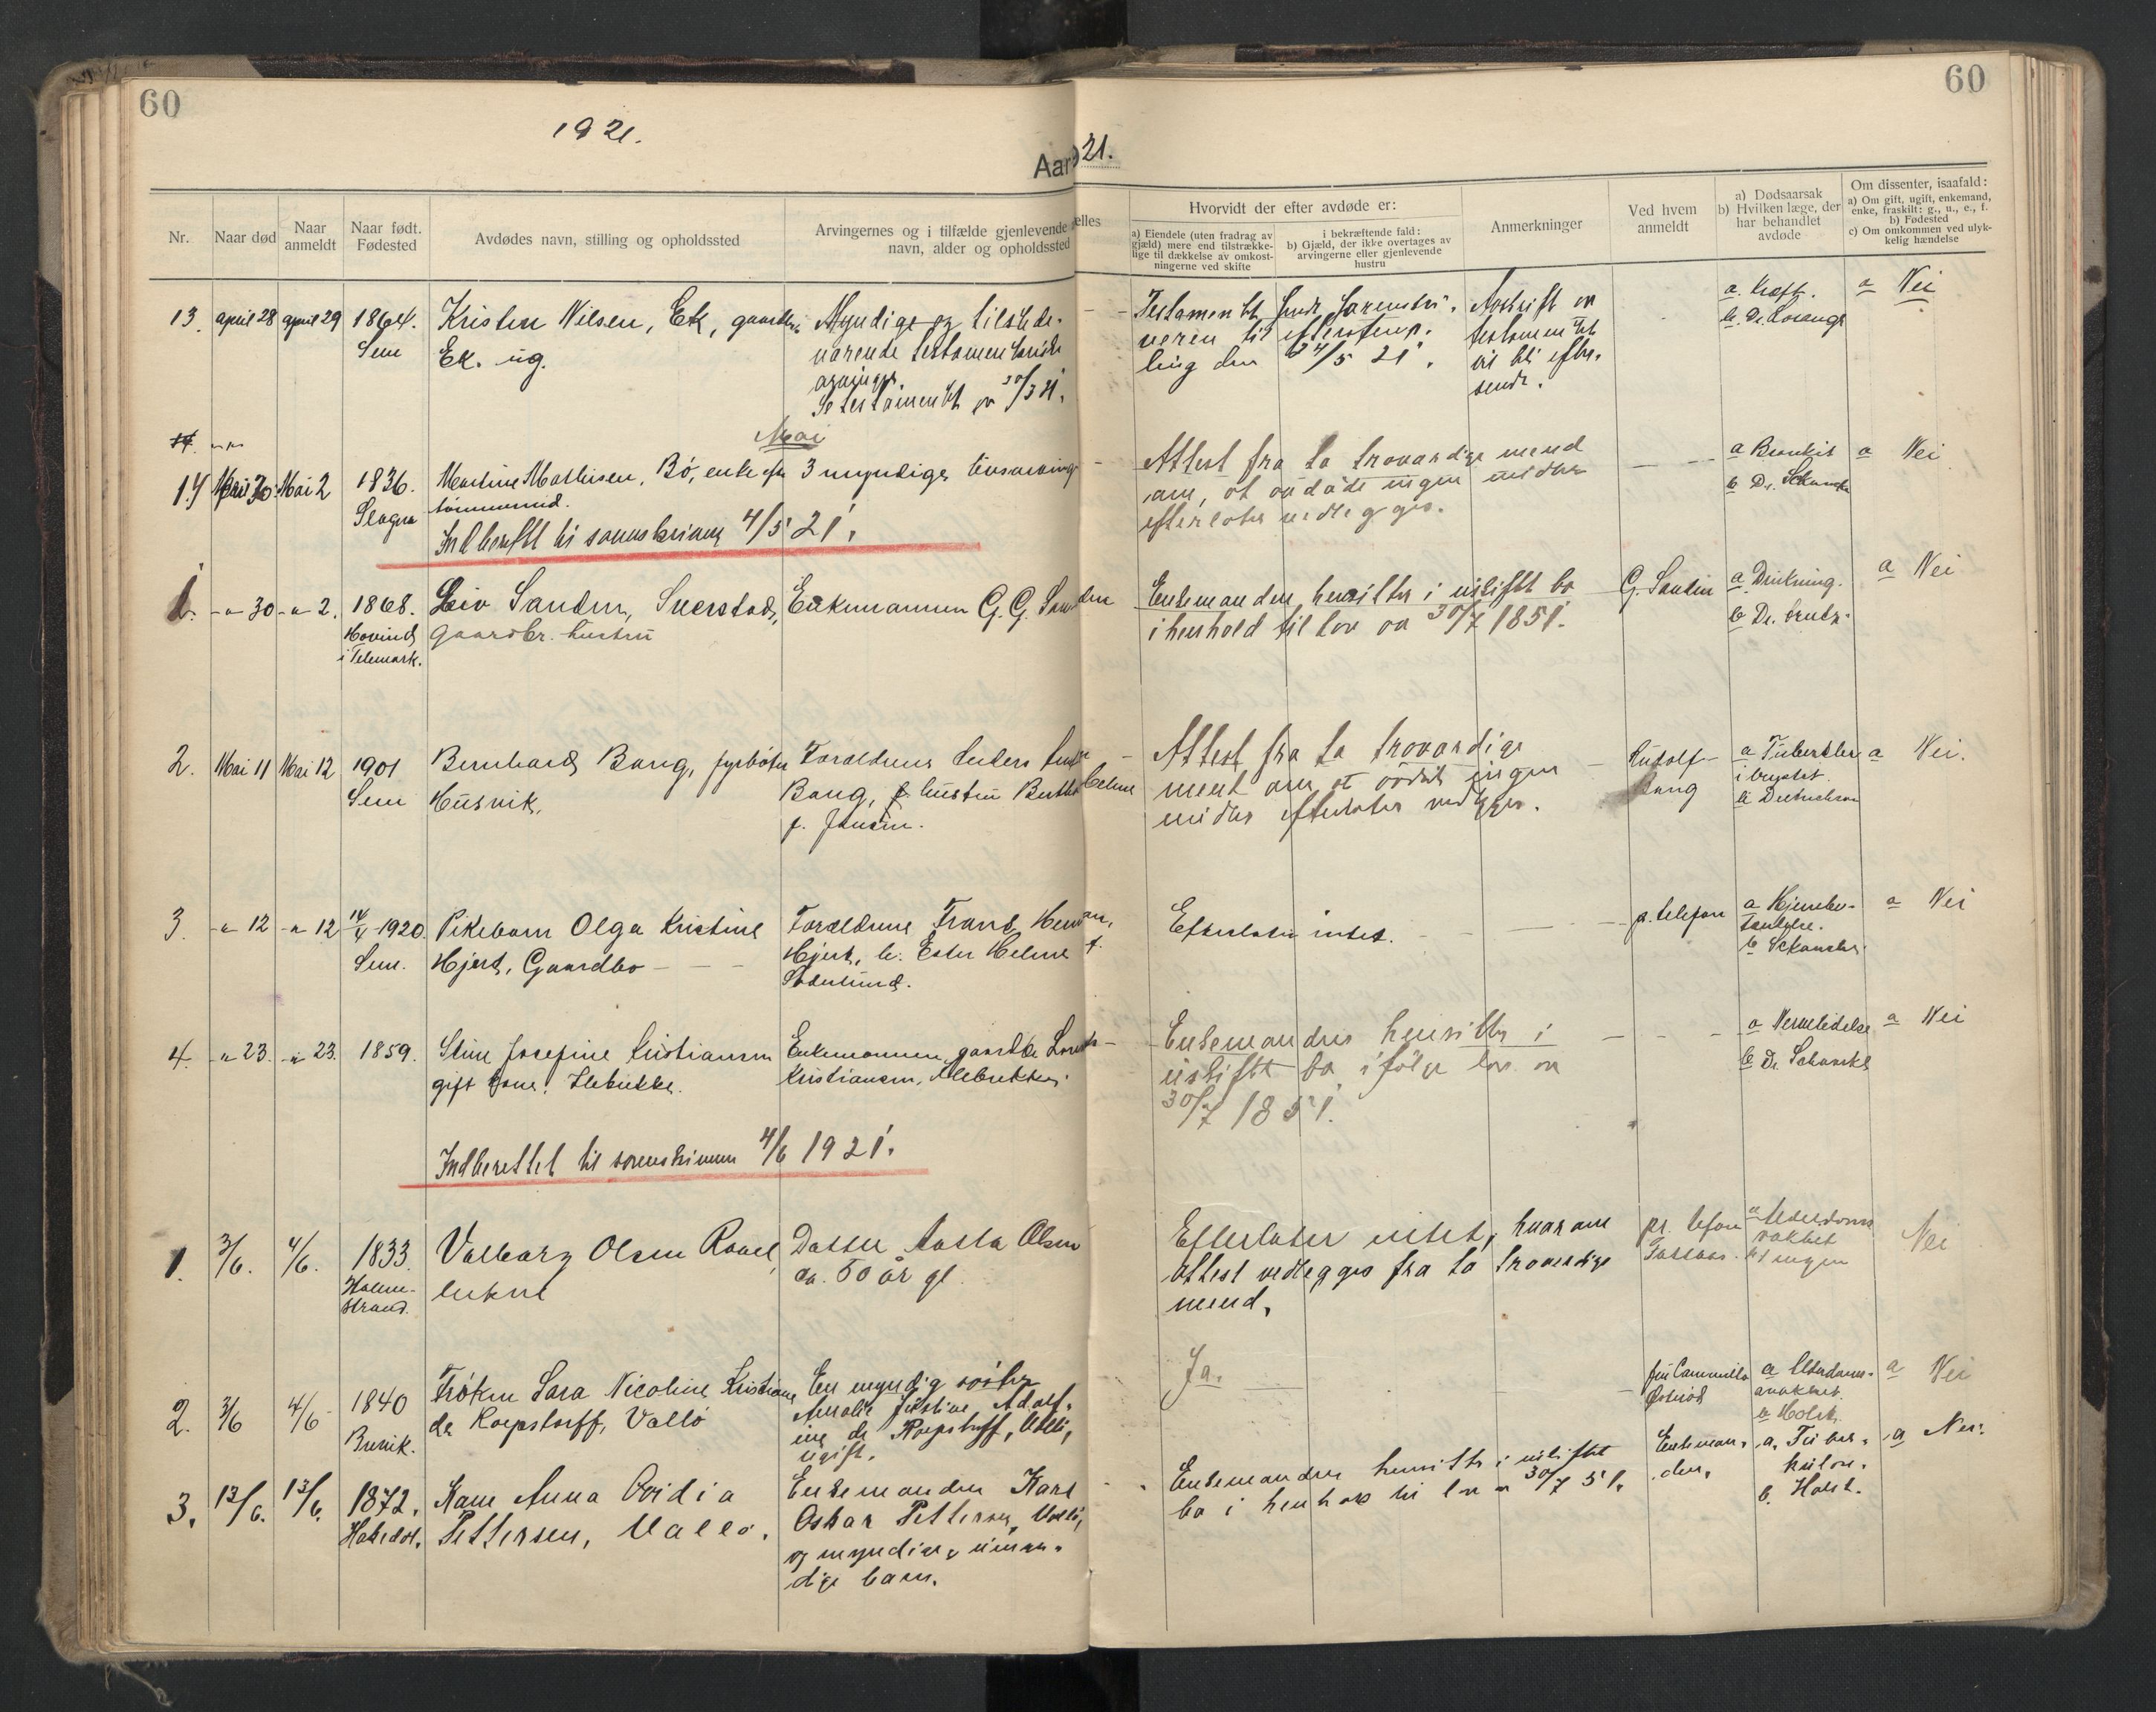 60
60
1921.
Aar 21.
Nr.
Naar død
Naar anmeldt
Naar født. Fødested
Avdødes navn, stilling og opholdssted
Arvingernes og i tilfælde gjenlevende
navn, alder og opholdssted
ælles
Hvorvidt der efter avdøde er:
a) Eiendele (uten fradrag av
gjæld) mere end tilstrække-
lige til dækkelse av omkost-
ningerne ved skifte
i bekræftende fald:
b) Gjæld, der ikke overtages av
arvingerne eller gjenlevende
hustru
Anmerkninger
Ved hvem
anmeldt
a) Dødsaarsak
b) Hvilken læge, der
har behandlet
avdøde
Om dissenter, isaafald:
a) Om gift, ugift, enkemand,
enke, fraskilt: g., u., e., f.
b) Fødested
c) Om omkommen ved ulyk-
kelig hændelse
13. april 28 april 29 1864. Sem
Kristen Nilsen, Ek,
Ek. ug.
Myndige og tilstede-
værende testamentariske
arvinger.
Se testamentet av
Testamentet
ling den 24/5 21.
Avskrift av
testamentet
vil bli efter-
sendt.
a. Kræft.
b. Dr.
a Nei
Mai
14 April 30 Mai 2 1836. Slagen
Martine Mathisen, Bö, enke efter
tömmermd.
3 myndige livsarvinger
Attest fra to troværdige mend
om, at avdöde ingen midler
efterlater vedlegges.
a Bronkit
b Dr.
a Nei
Indberettet til sorenskriveren 4/5 21.
1. -"- 30 -"- 2. 1868. Hovind i Telemark.
Liv Sanden,
gaardbr. hustru
Enkemannen G. G. Sanden
Enkemanden hensitter i uskiftet bo
i henhold til lov av 30/7 1851.
G. Sanden
a
b Dr.
a Nei
2. Mai 11 Mai 12 1901 Sem
Bernhard Bang, fyrböter
Husvik.
Foreldrene
Bang, hustru
f. Jensen.
Attest fra to troværdige
ment om at avdöde ingen
midler efterlater vedlegges.
Rudolf
Bang
a Tuberkler
i brystet.
b Dietrichson
a Nei.
3. -"- 12 -"- 12 14/4 1920. Sem.
Pikebarn Olga Kristine
Hjert, Gaardbo
Foreldrene Frans Herman,
Hjert, h. Ester Helene f.
Söderlund.
Efterlater intet.
p. telefon
a Hjernebe-
tendelse.
b
a Nei
4. -"- 23. -"- 23. 1859.
Stine Josefine Kristiansen
gift kone.
Enkemannen, gaardbr.
Kristiansen,
Enkemanden hensitter i
uskiftet bo ifölge lov av
30/7 1851.
a
b Dr.
a Nei
Indberettet til sorenskriveren 4/6 1921.
1. 3/6. 4/6. 1833. Holme-
strand.
Valborg Olsen
Datter Aasta Olsen
ca. 50 år gl.
Efterlater intet, hvorom
attest vedlegges fra to troverdige
mend.
a Alderdoms
b ingen
Nei
2. 3/6 4/6 1840 Brevik.
Fröken Sara Nicoline Kristiane
de Roepstorff, Vallö
En myndig söster
Amalie Justine Adolf-
ine de Roepstorff, Vallö,
ugift.
Ja.
a Alderdoms-
svakhet.
b Holst.
a Nei
3. 13/6. 13/6. 1872.
Kone Anna Ovidia
Pettersen, Vallö.
Enkemanden Karl
Oskar Pettersen, Vallö,
og myndige, umyn-
dige barn.
Enkemanden hensitter i uskiftet
bo i henhold til lov av 30/7 51.
Enkeman-
den.
a. Tuber-
kulose.
b. Holst.
a Nei.